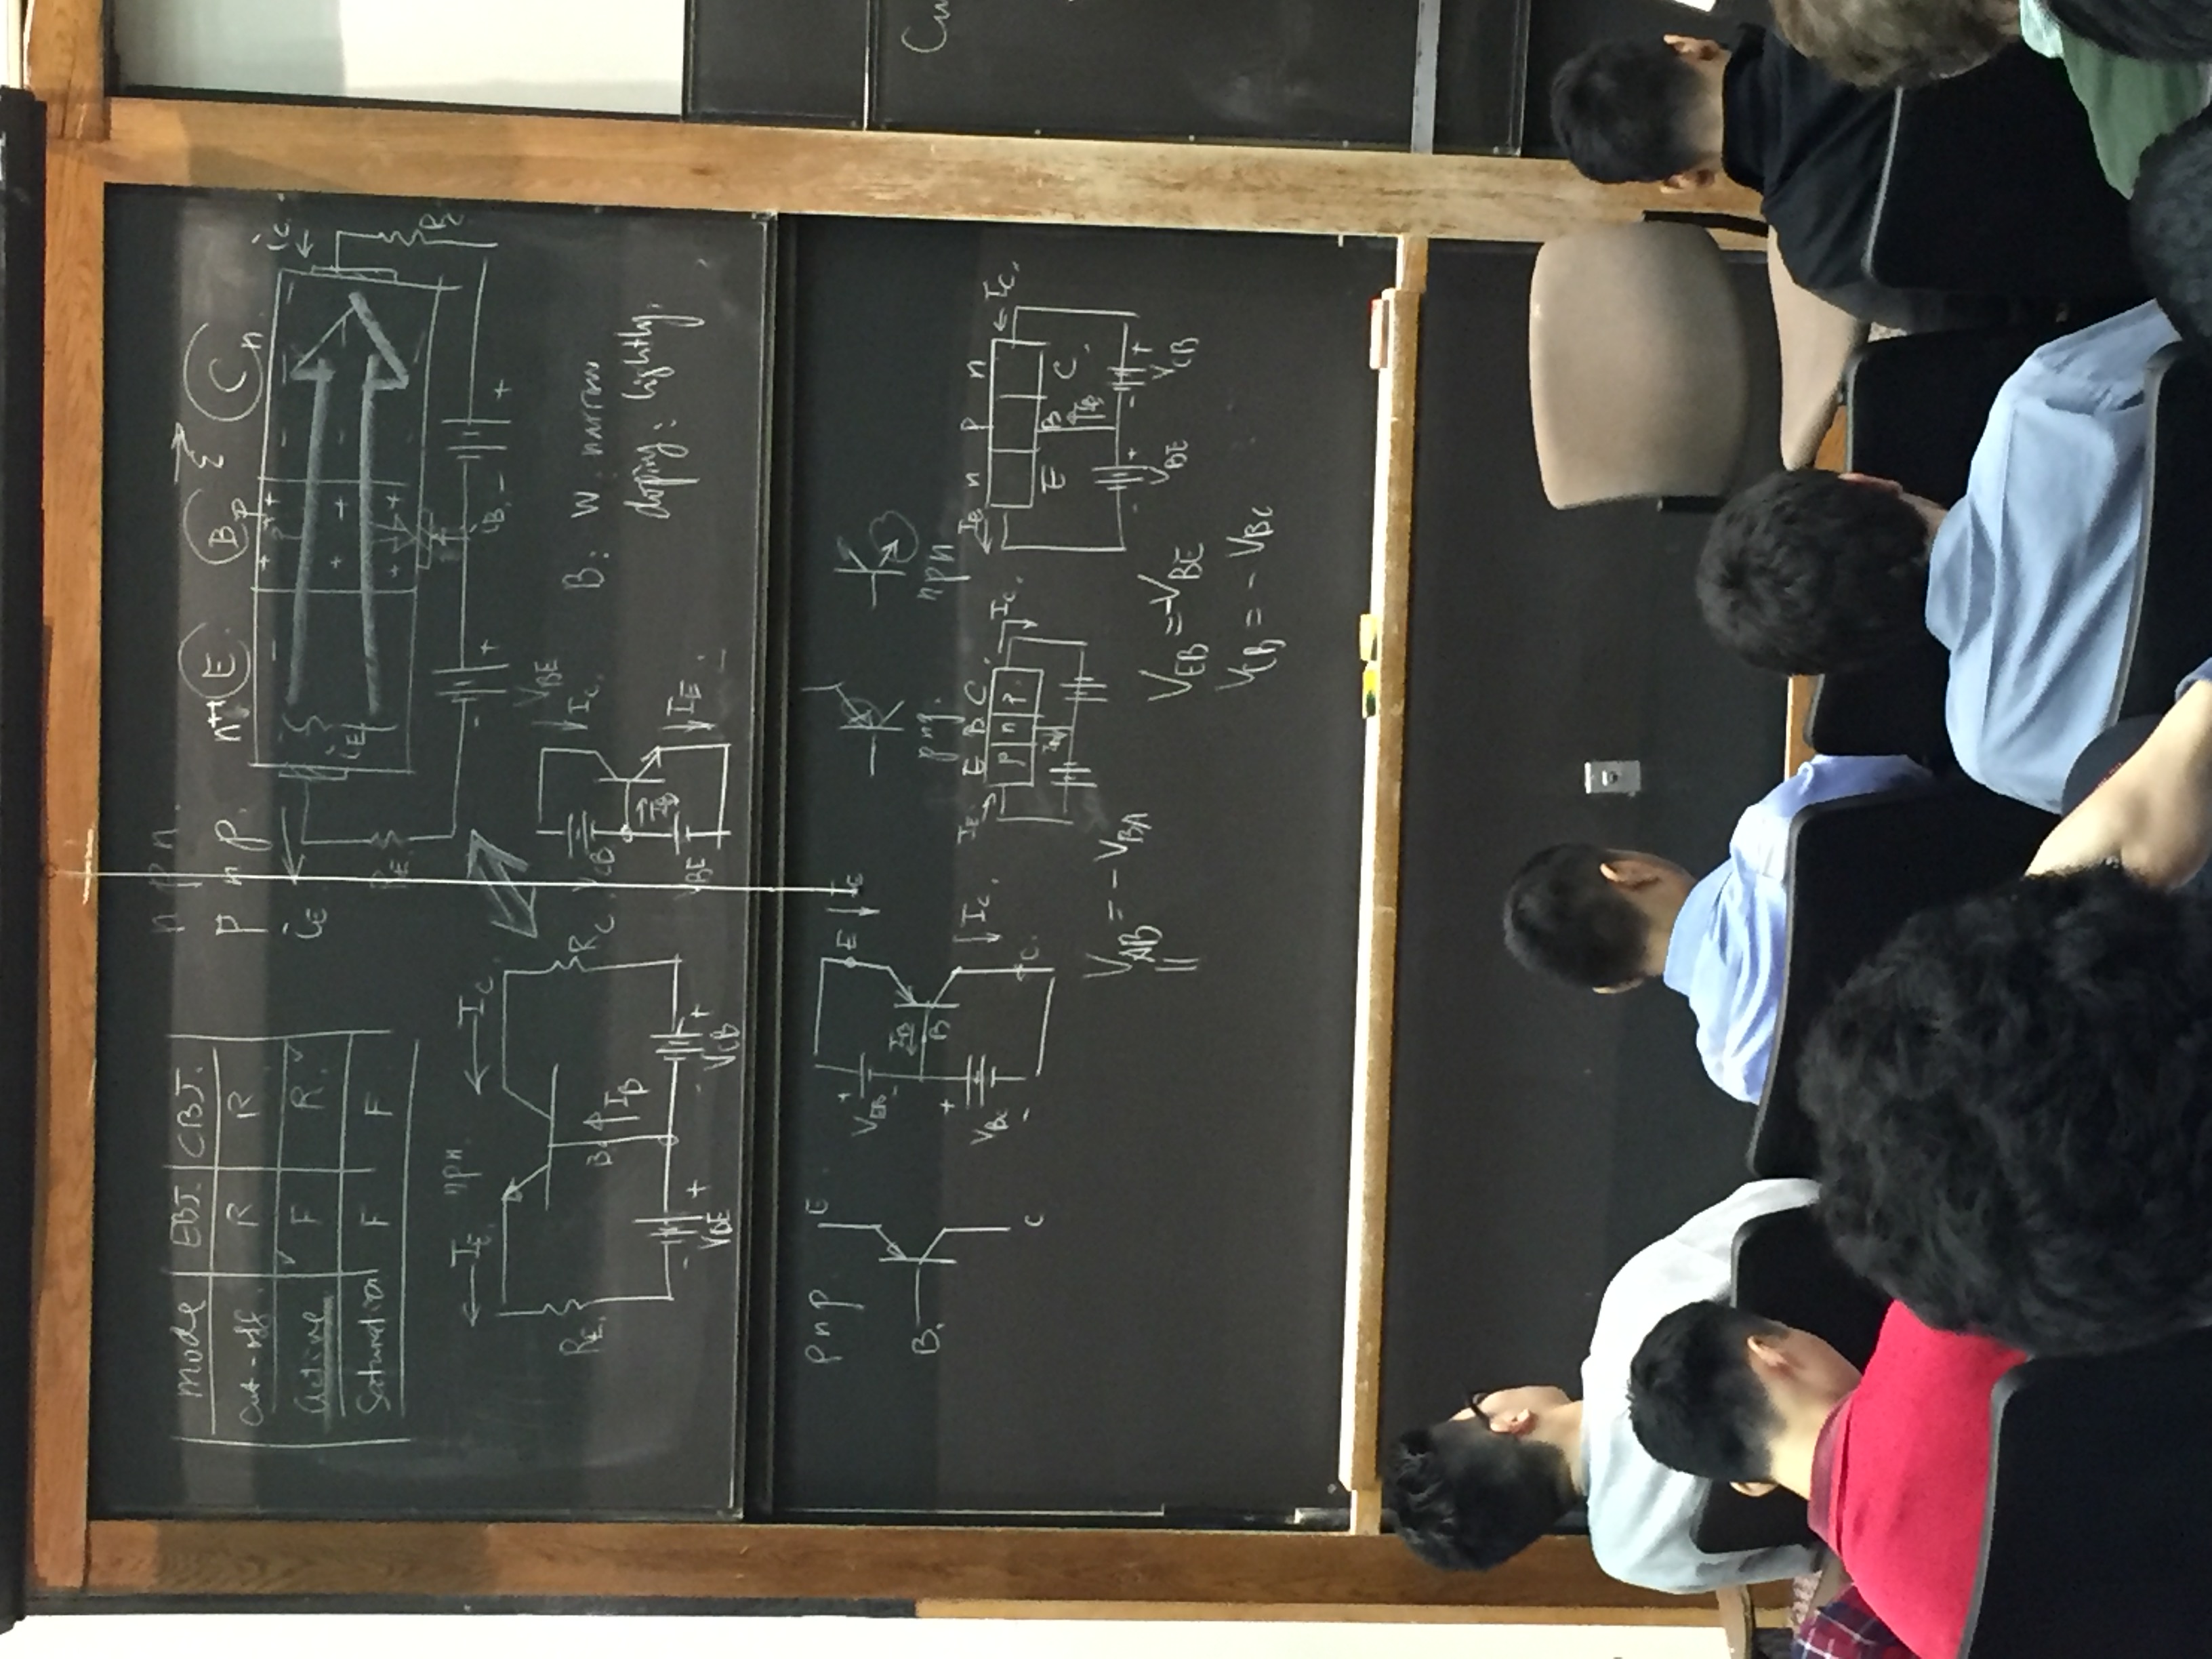 mode EBJ. CBJ.
Cut-off. R R
Active F R.
Saturation F F
npn.
pnp.
n++ E Bp ℰ Cn
iE
iE
iC
RE
RC
- + iB. - +
VBE
IE npn. IC
RE. B. IB RC
- + - +
VBE VCB
CB IC.
IB
BE IE
B: W. narrow
doping: lightly.
pnp E
B.
C
+ E IE
VEB
-
IB
B
+ IC.
VBC C.
-
pnp. npn
IE E B C IC.
p n p
IE n p n IC.
E B C
IB
- + - +
VBE VCB
VAB = - VBA
||
VEB = -VBE
VCB = - VBC